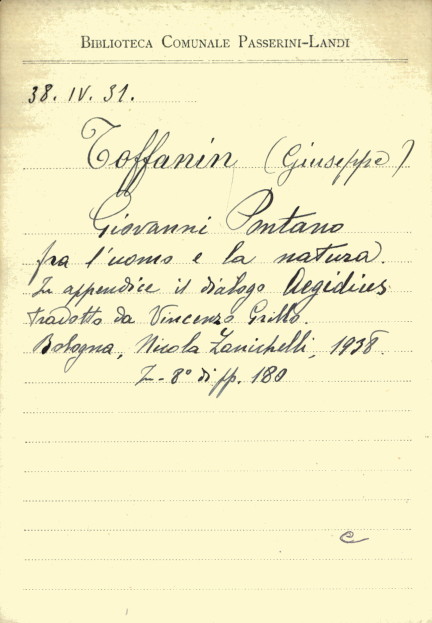 BIBLIOTECA COMUNALE PASSERINI-LANDI
38. IV. 31.
Toffanin (Giuseppe)
Giovanni Pontano
fra l'uomo e la natura.
In appendice il dialogo Aegidius
tradotto da Vincenzo Grillo.
Bologna, Nicola Zanichelli, 1938.
In-8° di pp. 180
e